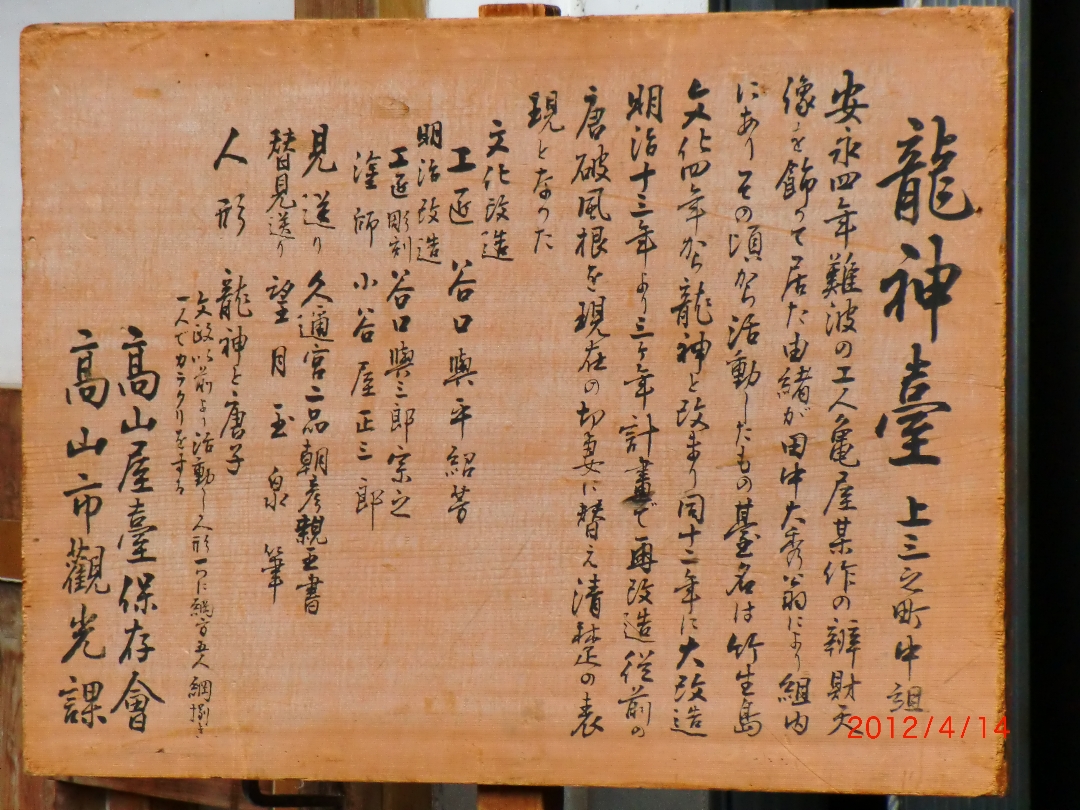 龍神臺 上三之町中組
安永四年難波の工人亀屋某作の辨財天
像を飾って居た由緒が田中大秀翁により組内
にありその頃から活動したもの臺名は竹生島
文化四年から龍神と改まり同十二年に大改造
明治十三年より三ヶ年計畫で再改造従前の
唐破風根を現在の切妻に替え清楚の表
現となった
文化改造
工匠 谷口與平紹芳
明治改造
工匠彫刻 谷口與三郎宗之
塗師 小谷屋正三郎
見送り 久邇宮二品朝彦親王書
替見送り 望月玉泉筆
人形 龍神と唐子
文政以前より活動し人形一つに綱方五人綱捌き
一人でカラクリをする
高山屋臺保存會
高山市觀光課
2012/4/14